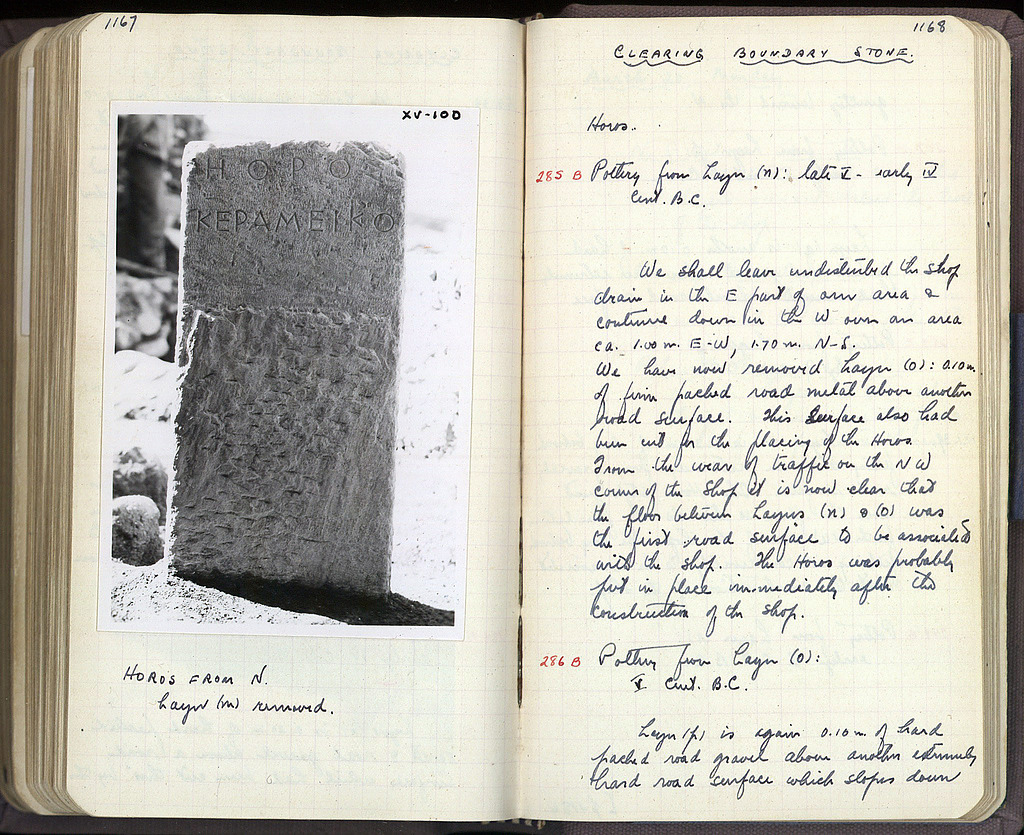 1167
XV-100
ΗΟΡΟΣ
ΚΕΡΑΜΕΙΚΟ
HOROS FROM N.
Layer (m) removed.
1168
CLEARING BOUNDARY STONE.
Horos.
285 B Pottery from Layer (n): late V - early IV
Cent. B.C.
We shall leave undisturbed the shop
drain in the E part of our area &
continue down in the W over an area
ca. 1.00 m. E-W, 1.70 m. N-S.
We have now removed Layer (o): 0.10 m.
of firm packed road metal above another
road surface. This surface also had
been cut for the placing of the Horos.
From the wear of traffic on the NW
corner of the shop it is now clear that
the floor between Layers (n) & (o) was
the first road surface to be associated
with the shop. The Horos was probably
put in place immediately after the
construction of the shop.
286 B Pottery from Layer (o):
V Cent. B.C.
Layer (p) is again 0.10 m. of hard
packed road gravel above another extremely
hard road surface which slopes down